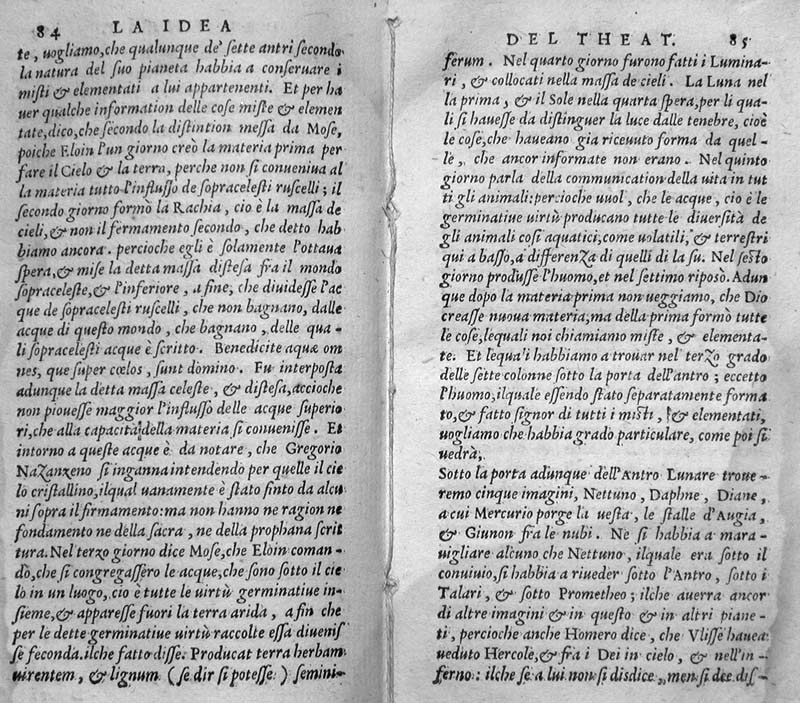 84 LA IDEA
te, uogliamo, che qualunque de' ſette antri ſecondo
la natura del ſuo pianeta habbia a conſeruare i
miſti & elementati a lui appartenenti. Et per ha
uer qualche information delle coſe miſte & elemen
tate, dico, che ſecondo la diſtintion meſſa da Moſe,
poiche Eloin l'un giorno creò la materia prima per
fare il Cielo & la terra, perche non ſi conueniua al
la materia tutto l'influſſo de ſopraceleſti ruſcelli; il
ſecondo giorno formò la Rachia, cio è la maſſa de
cieli, & non il fermamento ſecondo, che detto hab
biamo ancora. percioche egli è ſolamente l'ottaua
ſpera, & miſe la detta maſſa diſteſa fra il mondo
ſopraceleſte, & l'inferiore, a fine, che diuideſſe l'ac
que de ſopraceleſti ruſcelli, che non bagnano, dalle
acque di queſto mondo, che bagnano, delle qua-
li ſopraceleſti acque è ſcritto. Benedicite aquæ om
nes, que ſuper cœlos, ſunt domino. Fu interpoſta
adunque la detta maſſa celeſte, & diſteſa, accioche
non piouesse maggior l'influſſo delle acque ſuperio
ri, che alla capacità della materia ſi conueniſſe. Et
intorno a queſte acque è da notare, che Gregorio
Nazanzeno ſi inganna intendendo per quelle il cie
lo criſtallino, ilqual uanamente è ſtato finto da alcu
ni ſopra il firmamento: ma non hanno ne ragion ne
fondamento ne della ſacra, ne della prophana ſcrit
tura. Nel terzo giorno dice Moſe, che Eloin coman-
dò, che ſi congregaſſero le acque, che ſono ſotto il cie
lo in un luogo, cio è tutte le uirtù germinatiue in-
ſieme, & appareſſe fuori la terra arida, a fin che
per le dette germinatiue uirtù raccolte eſſa diueniſ
ſe feconda. ilche fatto diſſe. Producat terra herbam
uirentem, & lignum (ſe dir ſi poteſſe) ſemini-
DEL THEAT. 85
ferum. Nel quarto giorno furono fatti i Lumina-
ri, & collocati nella maſſa de cieli. La Luna nel
la prima, & il Sole nella quarta ſpera, per li qua-
li ſi haueſſe da diſtinguer la luce dalle tenebre, cioè
le coſe, che haueano gia riceuuto forma da quel-
le, che ancor informate non erano. Nel quinto
giorno parla della communication della uita in tut
ti gli animali: percioche uuol, che le acque, cio è le
germinatiue uirtù producano tutte le diuerſità de
gli animali coſi aquatici, come uolatili, & terreſtri
qui a baſſo, a differenza di quelli di la ſu. Nel ſeſto
giorno produſſe l'huomo, et nel ſettimo ripoſò. Adun
que dopo la materia prima non ueggiamo, che Dio
creaſſe nuoua materia, ma della prima formò tutte
le coſe, lequali noi chiamiamo miſte, & elementa-
te. Et lequa'i habbiamo a trouar nel terzo grado
delle ſette colonne ſotto la porta dell'antro; eccetto
l'huomo, ilquale eſſendo ſtato ſeparatamente forma
to, & fatto ſignor di tutti i miſti, & elementati,
uogliamo che habbia grado particulare, come poi ſi
uedrà.
Sotto la porta adunque dell'Antro Lunare troue-
remo cinque imagini, Nettuno, Daphne, Diane,
a cui Mercurio porge la ueſta, le ſtalle d'Augia,
& Giunon fra le nubi. Ne ſi habbia a mara-
uigliare alcuno che Nettuno, ilquale era ſotto il
conuiuio, ſi habbia a riueder ſotto l'Antro, ſotto i
Talari, & ſotto Prometheo; ilche auerra ancor
di altre imagini & in queſto & in altri piane-
ti, percioche anche Homero dice, che Vliſſe hauea
ueduto Hercole, & fra i Dei in cielo, & nell'in-
ferno: ilche ſe a lui non ſi diſdice, men ſi dee diſ-